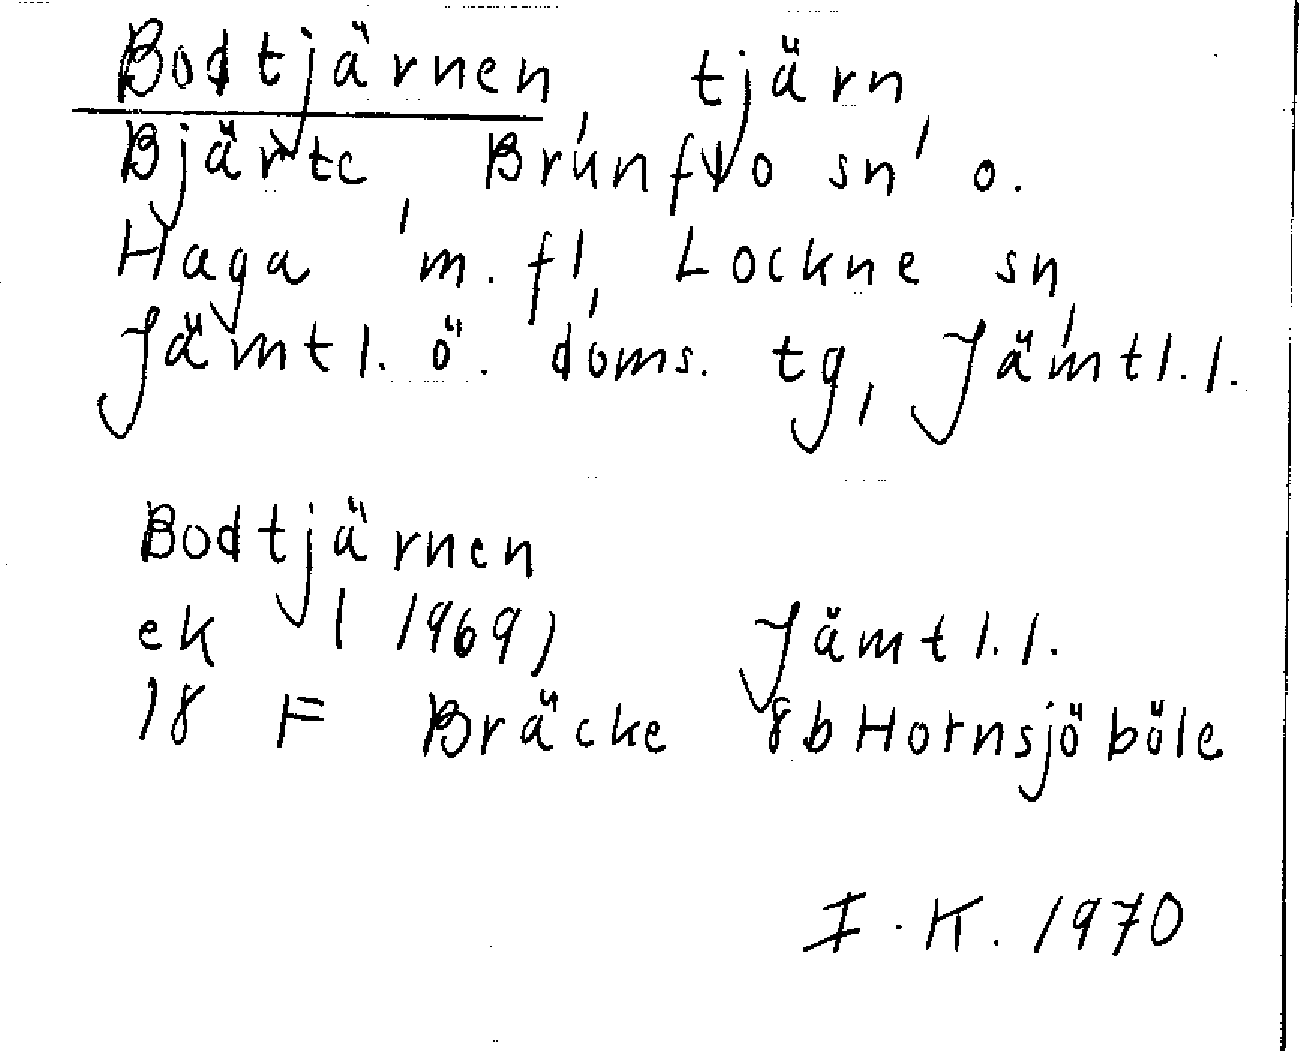 Bodtjärnen, tjärn
Bjärte, Brunflo sn, o.
Haga m. fl, Lockne sn,
Jämtl. ö. doms. tg, Jämtl. l.
Bodtjärnen
ek (1969) Jämtl. l.
18 F Bräcke 8b Hornsjöböle
I. K. 1970